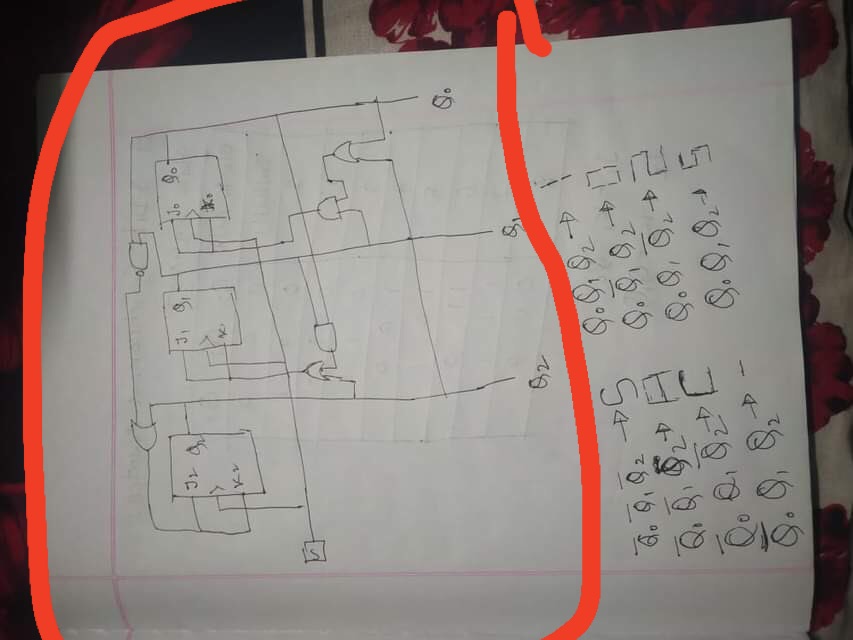 J2 Q2
K2
J1 Q1
K
J0 Q0
K0
Q0
Q1
Q2
Q̅0 Q̅1 Q̅2 → S
Q̅0 Q̅1 Q2 → A
Q̅0 Q1 Q̅2 → C
Q̅0 Q1 Q2 → -
Q0 Q1 Q2 → 1
Q0 Q̅1 Q2 → 0
Q0 Q1 Q̅2 → 2
Q0 Q1 Q2 → 5